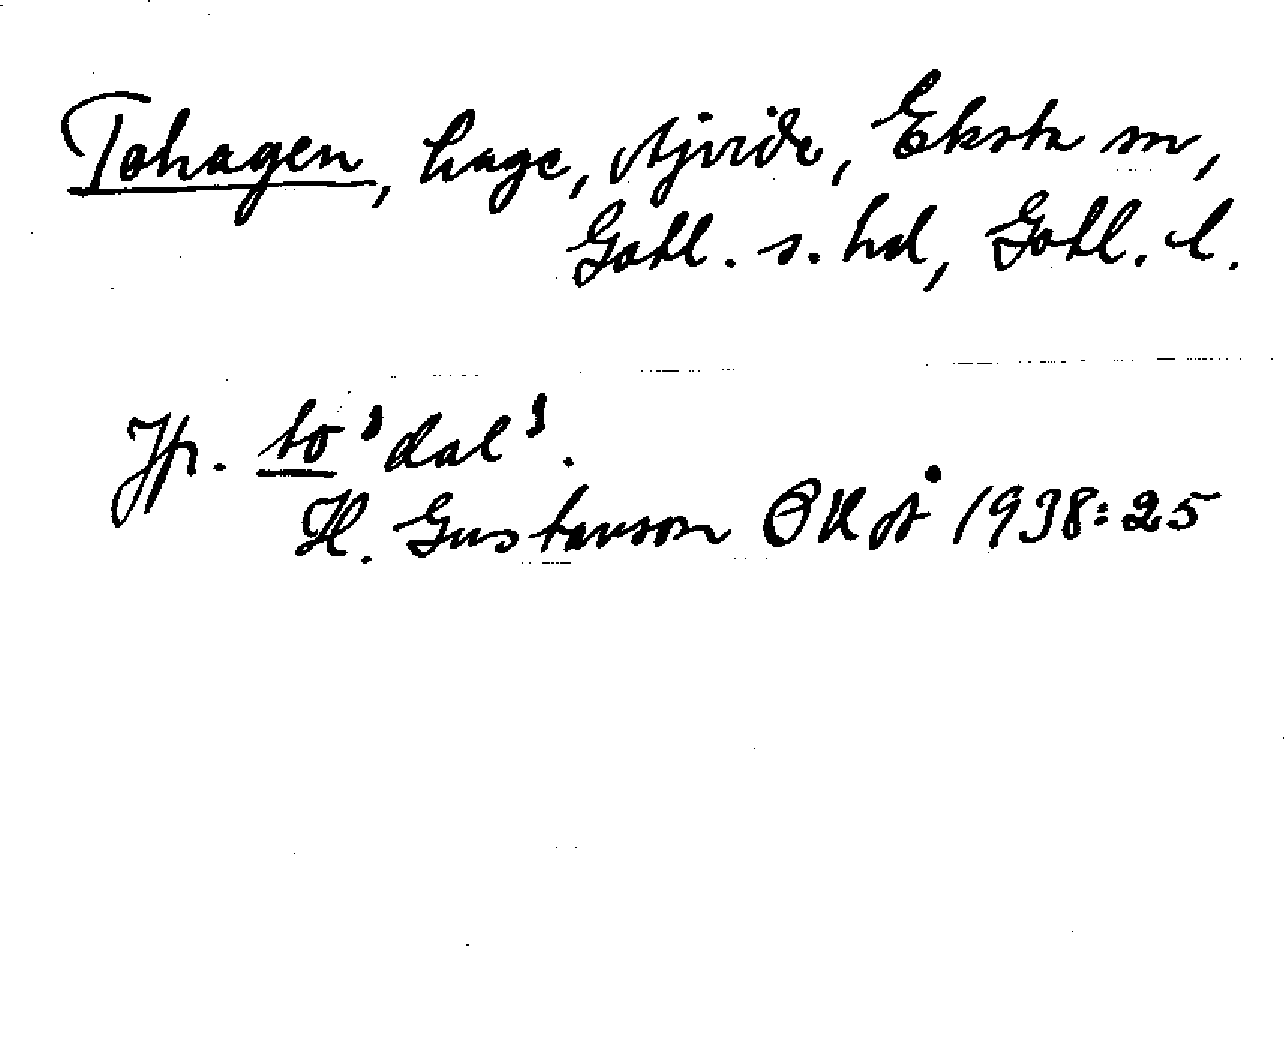 Tohagen, hage, Ajvide, Eksta sn,
Gotl. s. hd, Gotl. l.
Jfr. to 'dal'.
H. Gustavson OKÅ 1938:25